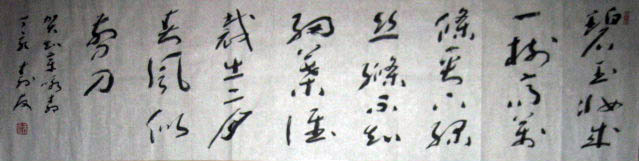 碧玉妝成
一樹高萬
條垂下綠
絲絛不知
細葉誰
裁出二月
春風似
剪刀
賀知章詠柳
丁亥